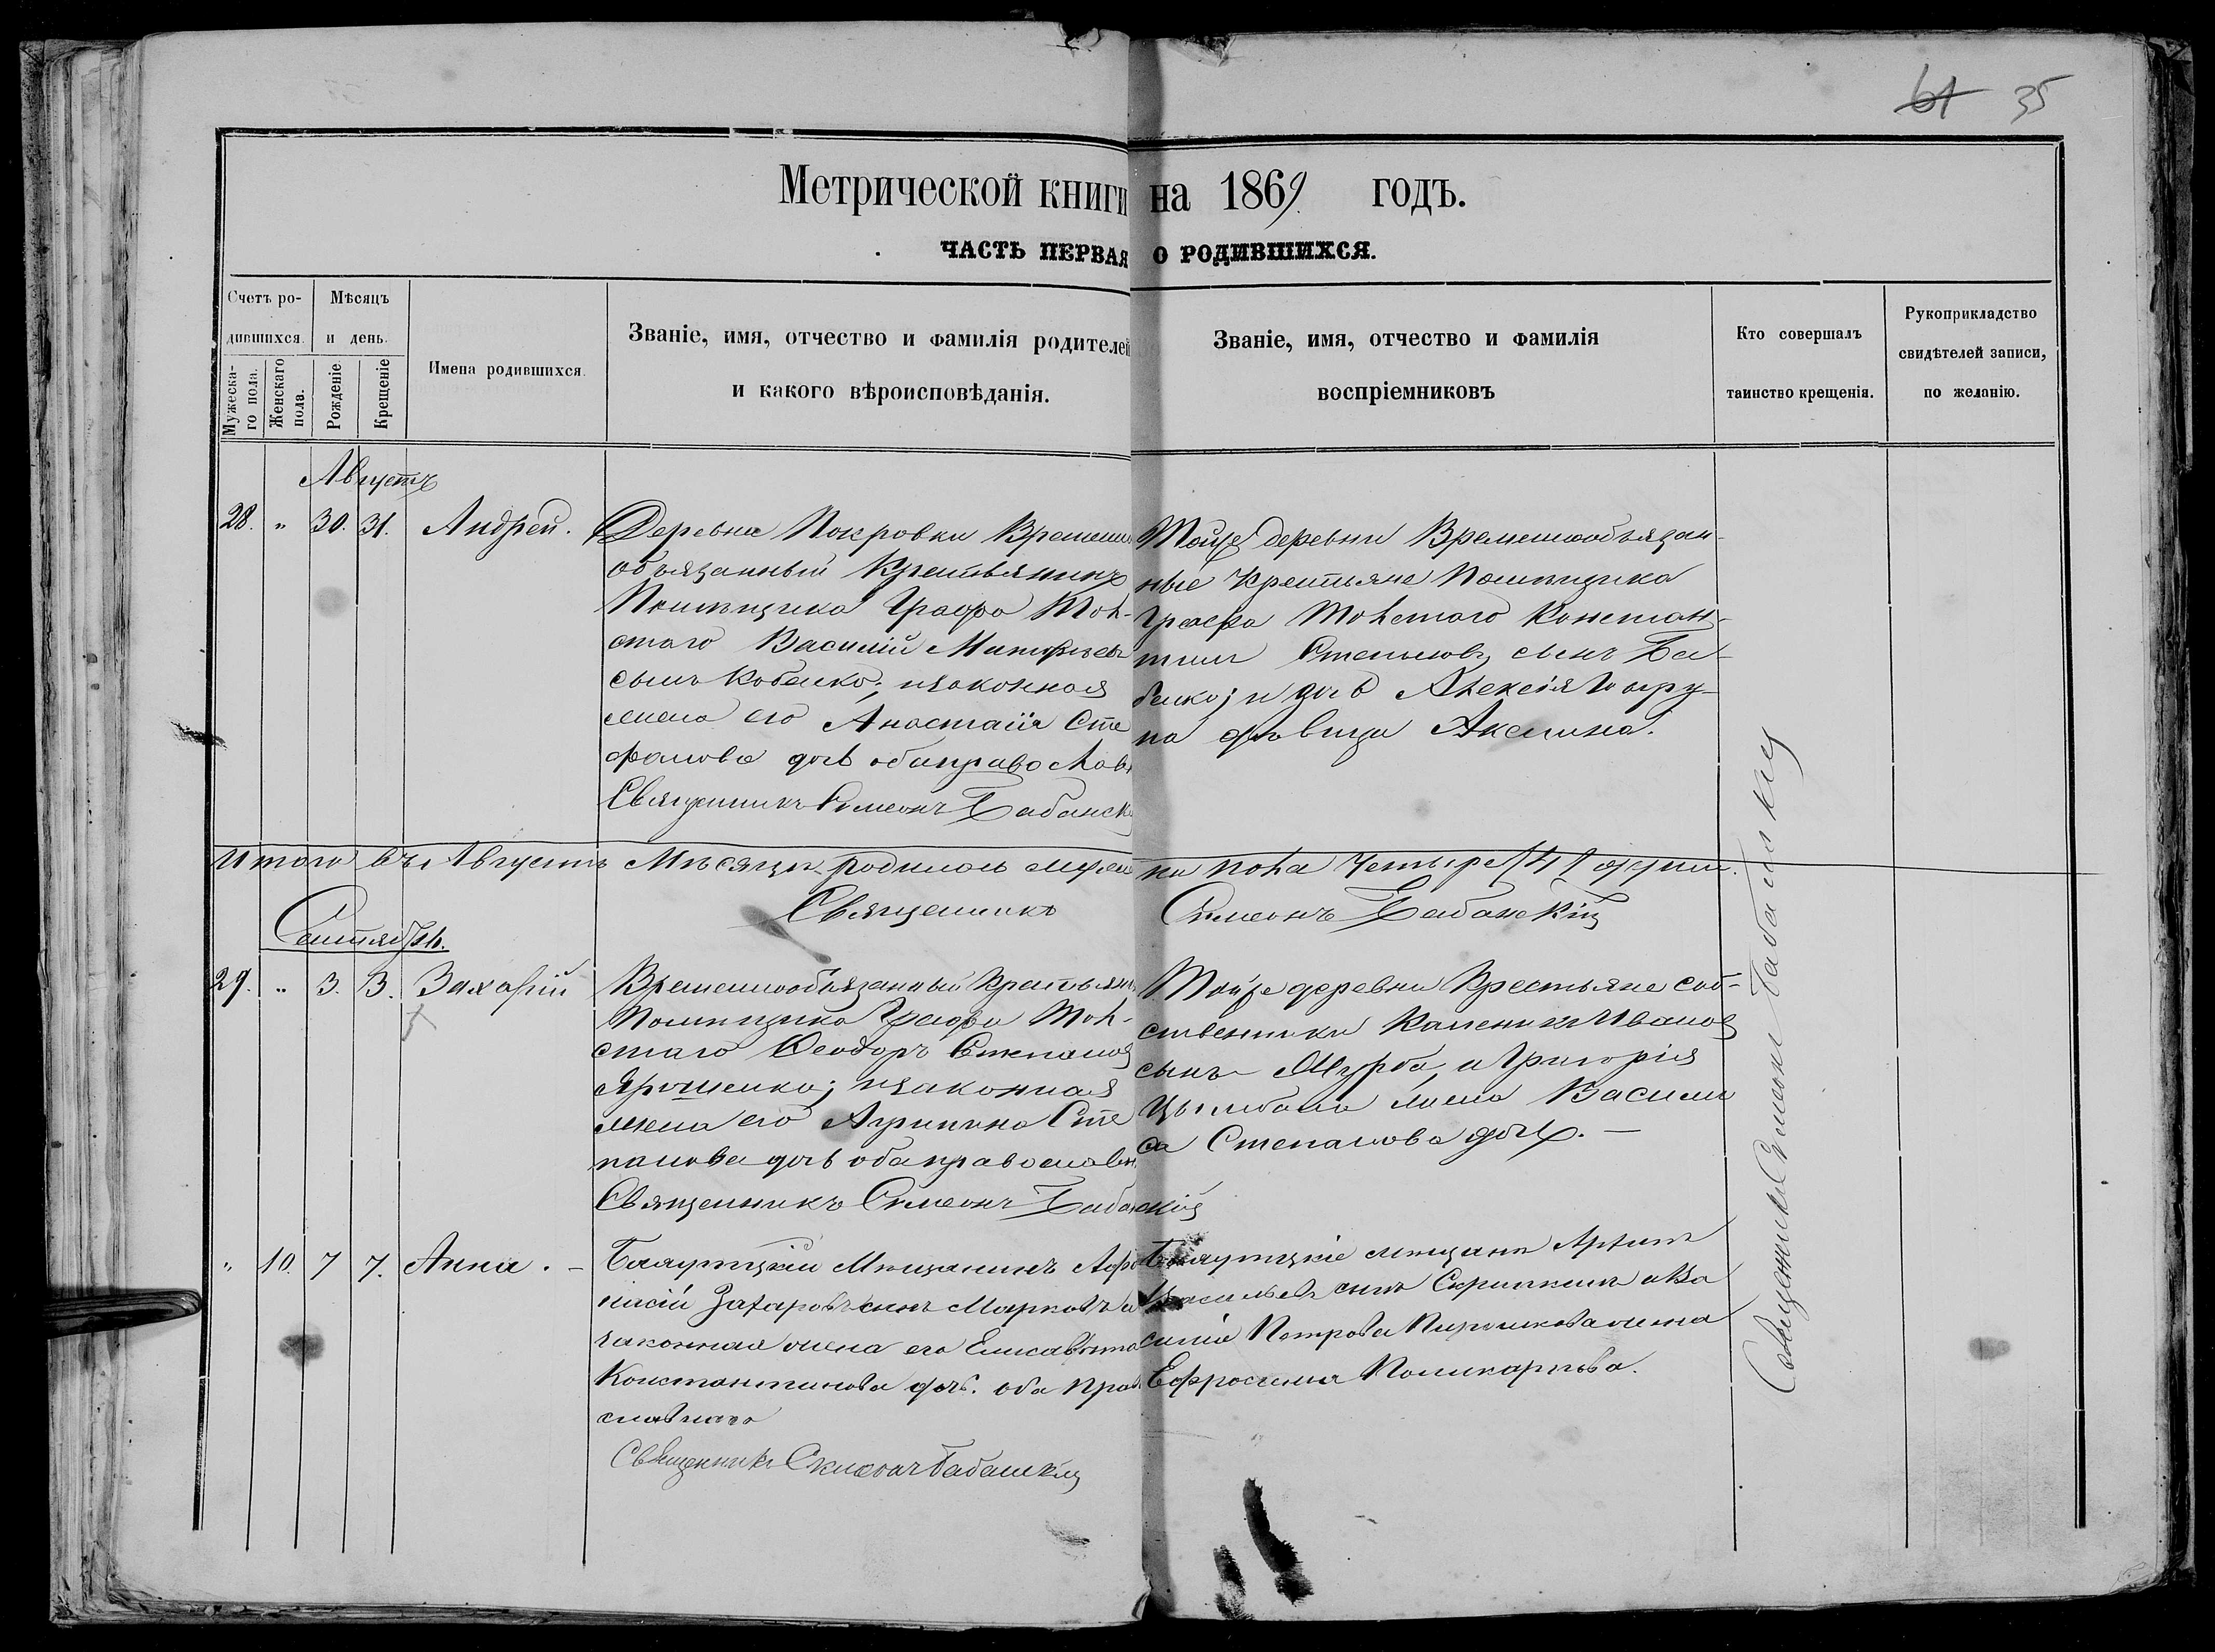 61 35
Метрической книги на 1869 годъ.
ЧАСТЬ ПЕРВАЯ О РОДИВШИХСЯ.
Счетъ родившихся.
Мужескаго пола.
Женскаго пола.
Мѣсяцъ и день.
Рожденіе
Крещеніе
Имена родившихся.
Званіе, имя, отчество и фамилія родителей
и какого вѣроисповѣданія.
Званіе, имя, отчество и фамилія
воспріемниковъ
Кто совершалъ
таинство крещенія.
Рукоприкладство
свидѣтелей записи,
по желанію.
Августъ
28. " 30. 31. Андрей.
Деревни Покровки Временно
обязанный Крестьянинъ
Помѣщика Графа Тол-
стаго Василій
сынъ Кобелко; и законная
жена его Анастасія Сте
фанова дочь оба православн
Священникъ Симеонъ Бабанск
Тойже деревни Временнообязан-
ные Крестьяне Помѣщика
Графа Толстаго Констан-
тинъ Степановъ сынъ Ба-
бенко; и дочь Алексія
дѣвица Аксинія.
Итого въ Августѣ Мѣсяцѣ родилось мужес
ка пола Четыре /4/ души.
Священникъ Симеонъ Бабанскій
Сентябрь.
29. " 3. 3. Захарій
Временнообязанный Крестьян
Помѣщика Графа Тол-
стаго Ѳеодоръ Степановъ
Ярошенко; и законная
жена его Агрипина Сте
панова дочь оба православн
Священникъ Симеонъ Бабанскій
Тойже деревни Крестьяне соб-
ственники Каленикъ Ивановъ
сынъ Шурба, и Григорія
Цымбала жена Васили
са Степанова дочь. —
" 10. 7 7. Анна. —
Бахмутскій Мѣщанинъ Афа
насій Захаровъ сынъ Марковъ и
законная жена его Елисавѣта
Константинова дочь. оба Право
славнаго
Священникъ Симеонъ Бабанскій
Бахмутскіе мѣщане
Васильевъ сынъ Скрипкинъ и Ва
силія Петрова жена
Ефросинія Поликарпова.
Священникъ Симеонъ Бабанскій